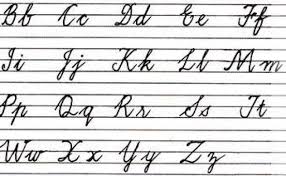 Bb Cc Dd Ee Ff
Ii Jj Kk Ll Mm
Pp Qq Rr Ss Tt
Ww Xx Yy Zz